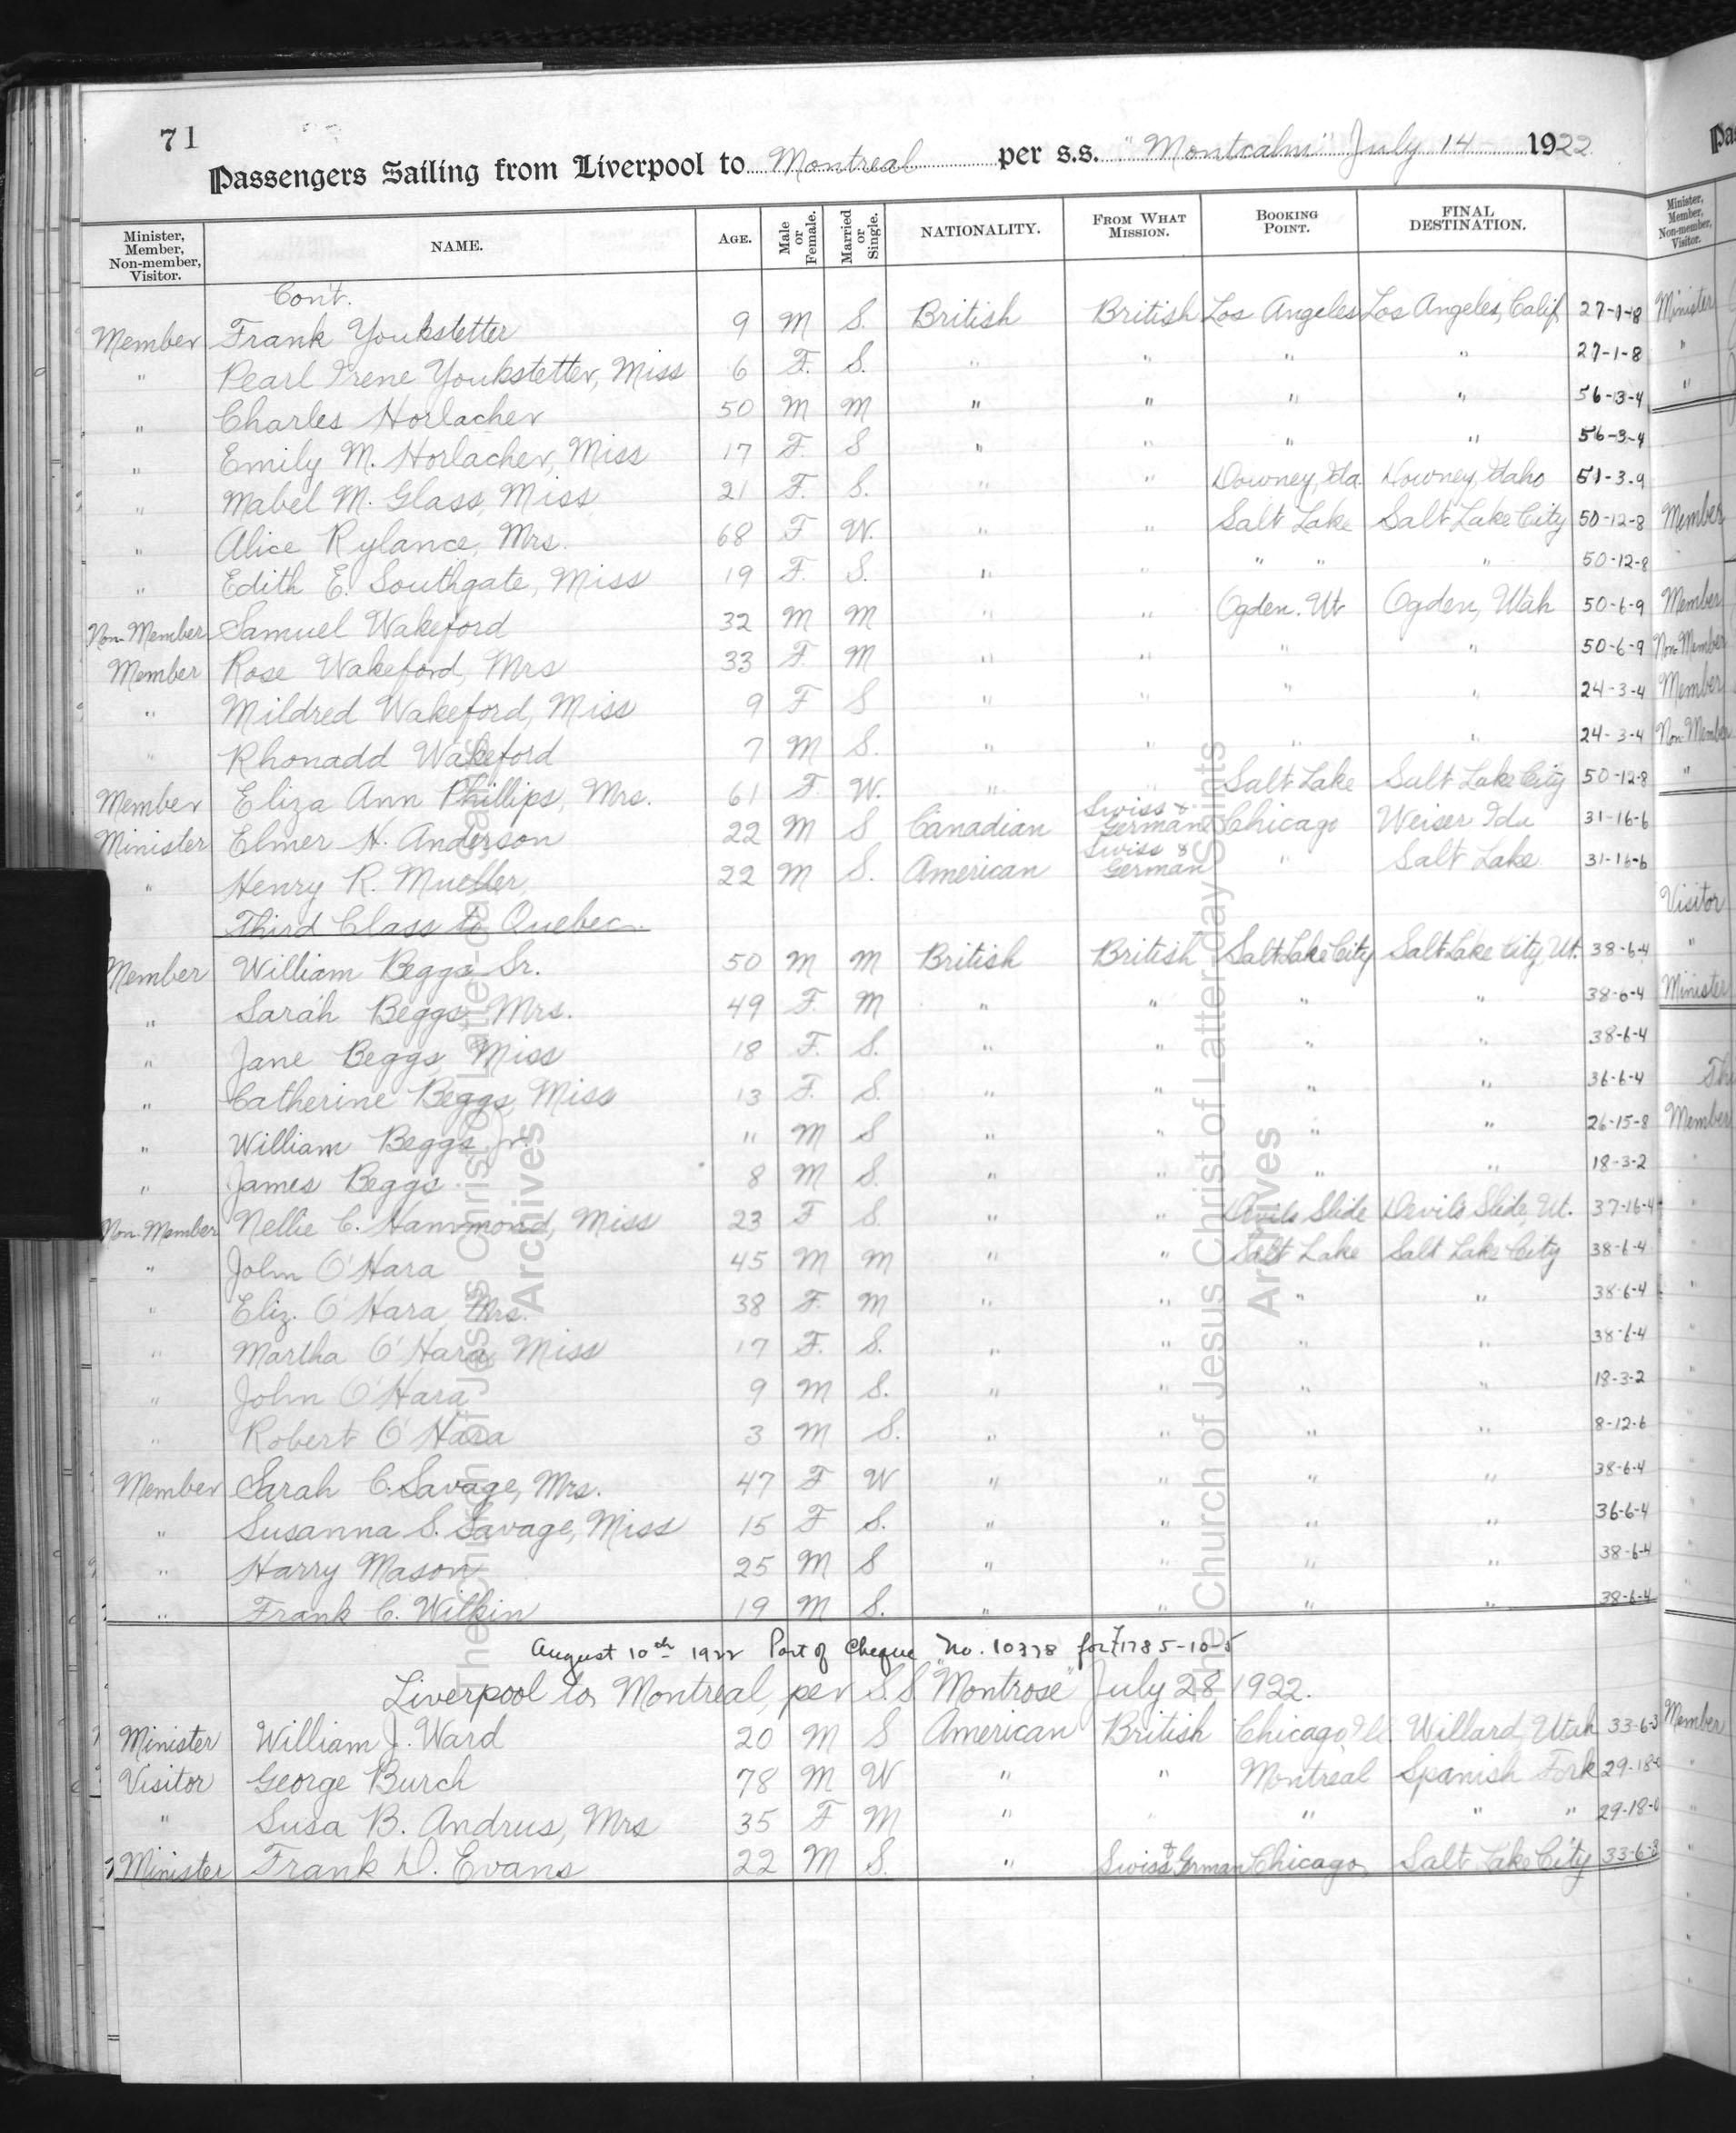 71
Passengers Sailing from Liverpool to Montreal per s.s. "Montcalm" July 14 - 1922
Minister, Member, Non-member, Visitor. NAME. AGE. Male or Female. Married or Single. NATIONALITY. FROM WHAT MISSION. BOOKING POINT. FINAL DESTINATION.
Cont.
Member Frank Youkstetter 9 M S. British British Los Angeles Los Angeles, Calif 27-1-8
" Pearl Irene Youkstetter, Miss 6 F. S. " " " " 27-1-8
" Charles Horlacher 50 M M " " " " 56-13-4
" Emily M. Horlacher, Miss 17 F. S " " " " 56-3-4
" Mabel M. Glass, Miss 21 F. S. " " Downey, Ida. Downey, Idaho 51-3-9
" Alice Rylance, Mrs. 68 F W. " " Salt Lake Salt Lake City 50-12-8
" Edith E. Southgate, Miss 19 F. S. " " " " " 50-12-8
Non-Member Samuel Wakeford 32 M M " " Ogden. Ut Ogden, Utah 50-6-9
Member Rose Wakeford, Mrs 33 F. M " " " " 50-6-9
" Mildred Wakeford, Miss 9 F S " " " " 24-3-4
" Rhonadd Wakeford 7 M S. " " " " 24-3-4
Member Eliza Ann Phillips, Mrs. 61 F. W. " " Salt Lake Salt Lake City 50-12-8
Minister Elmer H. Anderson 22 M S Canadian Swiss & German Chicago Weiser Ida 31-16-6
" Henry R. Mueller 22 M S. American Swiss & German " Salt Lake 31-16-6
Third Class to Quebec
Member William Beggs Sr. 50 M M British British Salt Lake City Salt Lake City, Ut. 38-6-4
" Sarah Beggs, Mrs. 49 F. M " " " " 38-6-4
" Jane Beggs, Miss 18 F. S. " " " " 38-6-4
" Catherine Beggs, Miss 13 F. S. " " " " 36-6-4
" William Beggs Jr. 11 M S " " " " 26-15-8
" James Beggs 8 M S. " " " " 18-3-2
Non-Member Nellie C. Hammond, Miss 23 F S. " " Devils Slide Devils Slide, Ut. 37-16-4
" John O'Hara 45 M M " " Salt Lake Salt Lake City 38-6-4
" Eliz. O'Hara, Mrs. 38 F. M " " " " 38-6-4
" Martha O'Hara, Miss 17 F. S. " " " " 38-6-4
" John O'Hara 9 M S. " " " " 18-3-2
" Robert O'Hara 3 M S. " " " " 8-12-6
Member Sarah C. Savage, Mrs. 47 F W " " " " 38-6-4
" Susanna S. Savage, Miss 15 F S. " " " " 36-6-4
" Harry Mason 25 M S " " " " 38-6-4
" Frank C. Wilkin 19 M S. " " " " 38-6-4
August 10th 1922 Part of Cheque No. 10378 for £1785-10-5
Liverpool to Montreal, per S.S. "Montrose" July 28, 1922.
Minister William J. Ward 20 M S American British Chicago Ill. Willard, Utah 33-6-3
Visitor George Burch 78 M W " " Montreal Spanish Fork 29-18-0
" Susa B. Andrus, Mrs 35 F M " " " " " 29-18-0
Minister Frank D. Evans 22 M S. " Swiss & German Chicago Salt Lake City 33-6-3
The Church of Jesus Christ of Latter-day Saints
Archives
The Church of Jesus Christ of Latter-day Saints
Archives
Minister, Member, Non-member, Visitor.
Minister
"
"
Member
Member
Non-Member
Member
Non-Member
"
Visitor
"
Minister
Member
Member